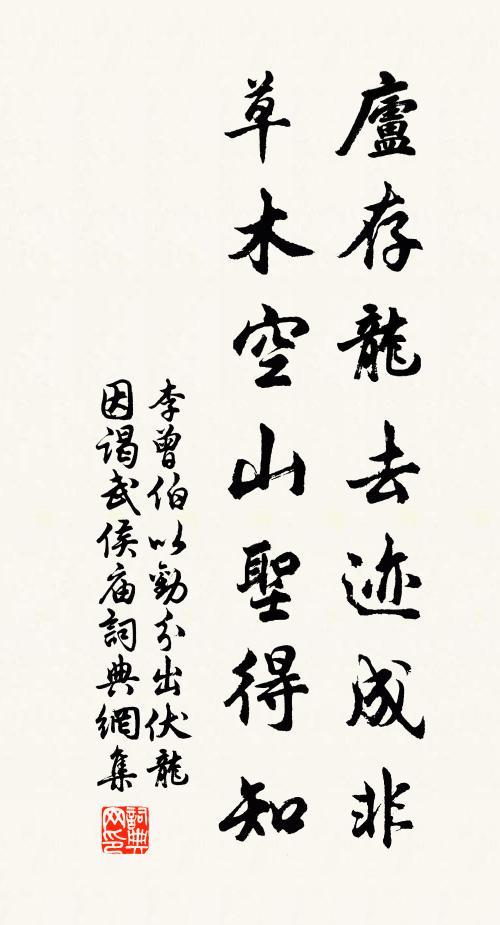 廬存龍去迹成非
草木空山聖得知
李曾伯以勸分出伏龍
因謁武侯庙詞典網集
詞典
网印